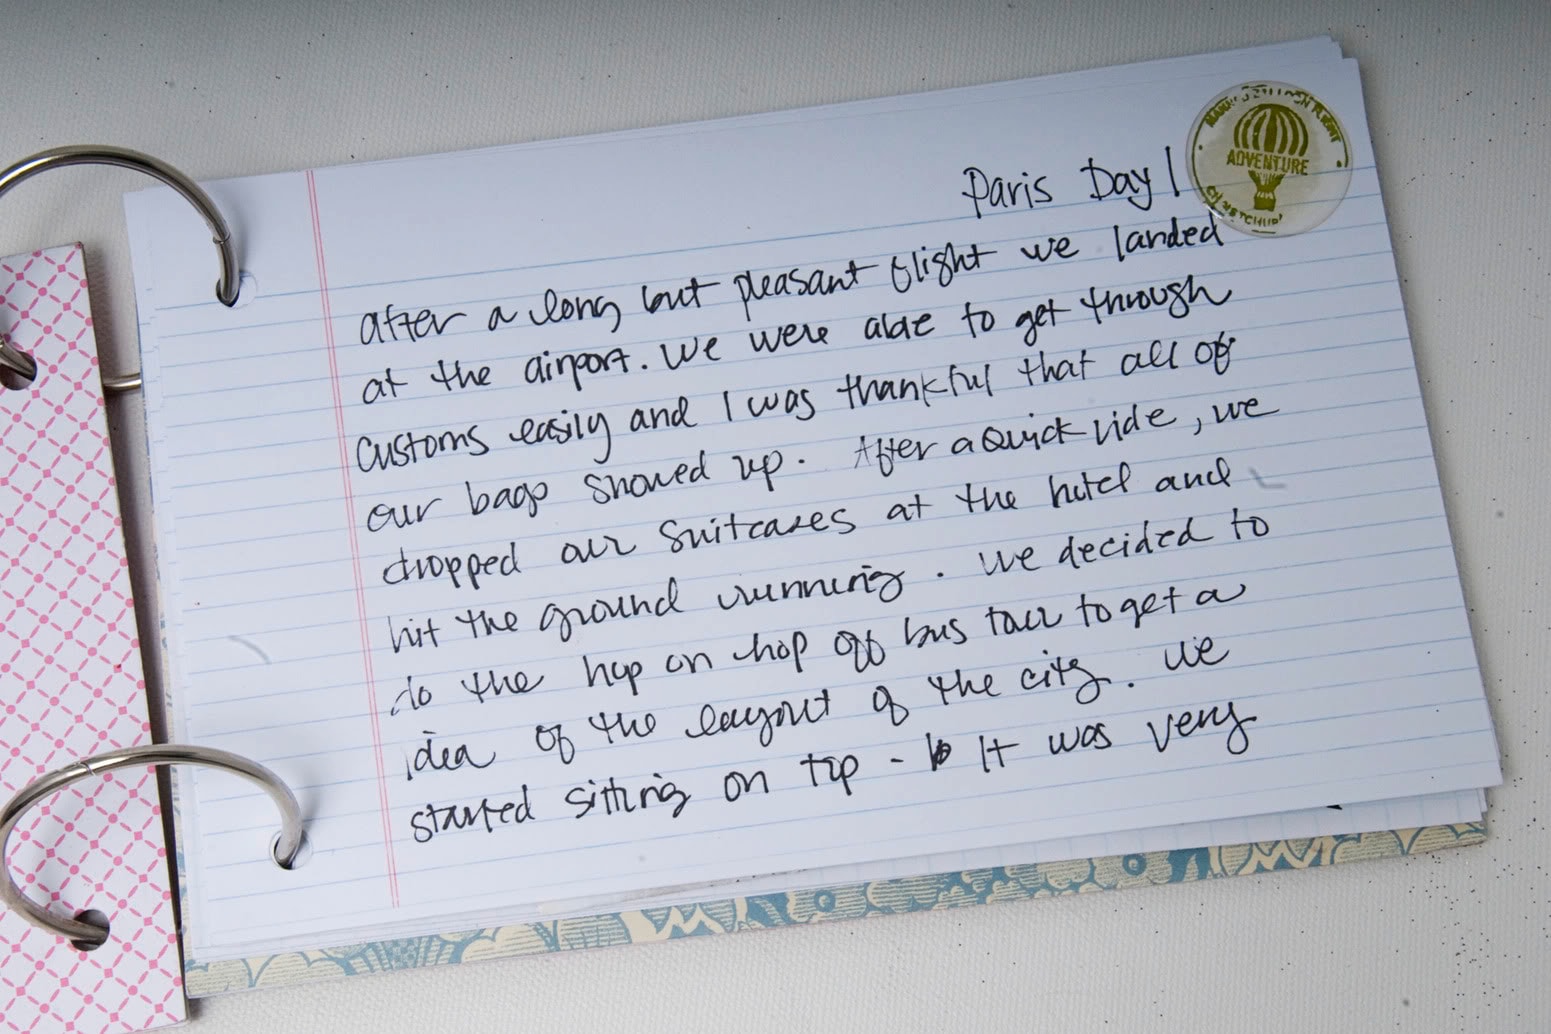 Paris Day 1
ADVENTURE
after a long but pleasant flight we landed
at the airport. We were able to get through
customs easily and I was thankful that all of
our bags showed up. After a quick ride, we
dropped our suitcases at the hotel and
hit the ground running. We decided to
do the hop on hop off bus tour to get a
idea of the layout of the city. We
started sitting on top - It was very